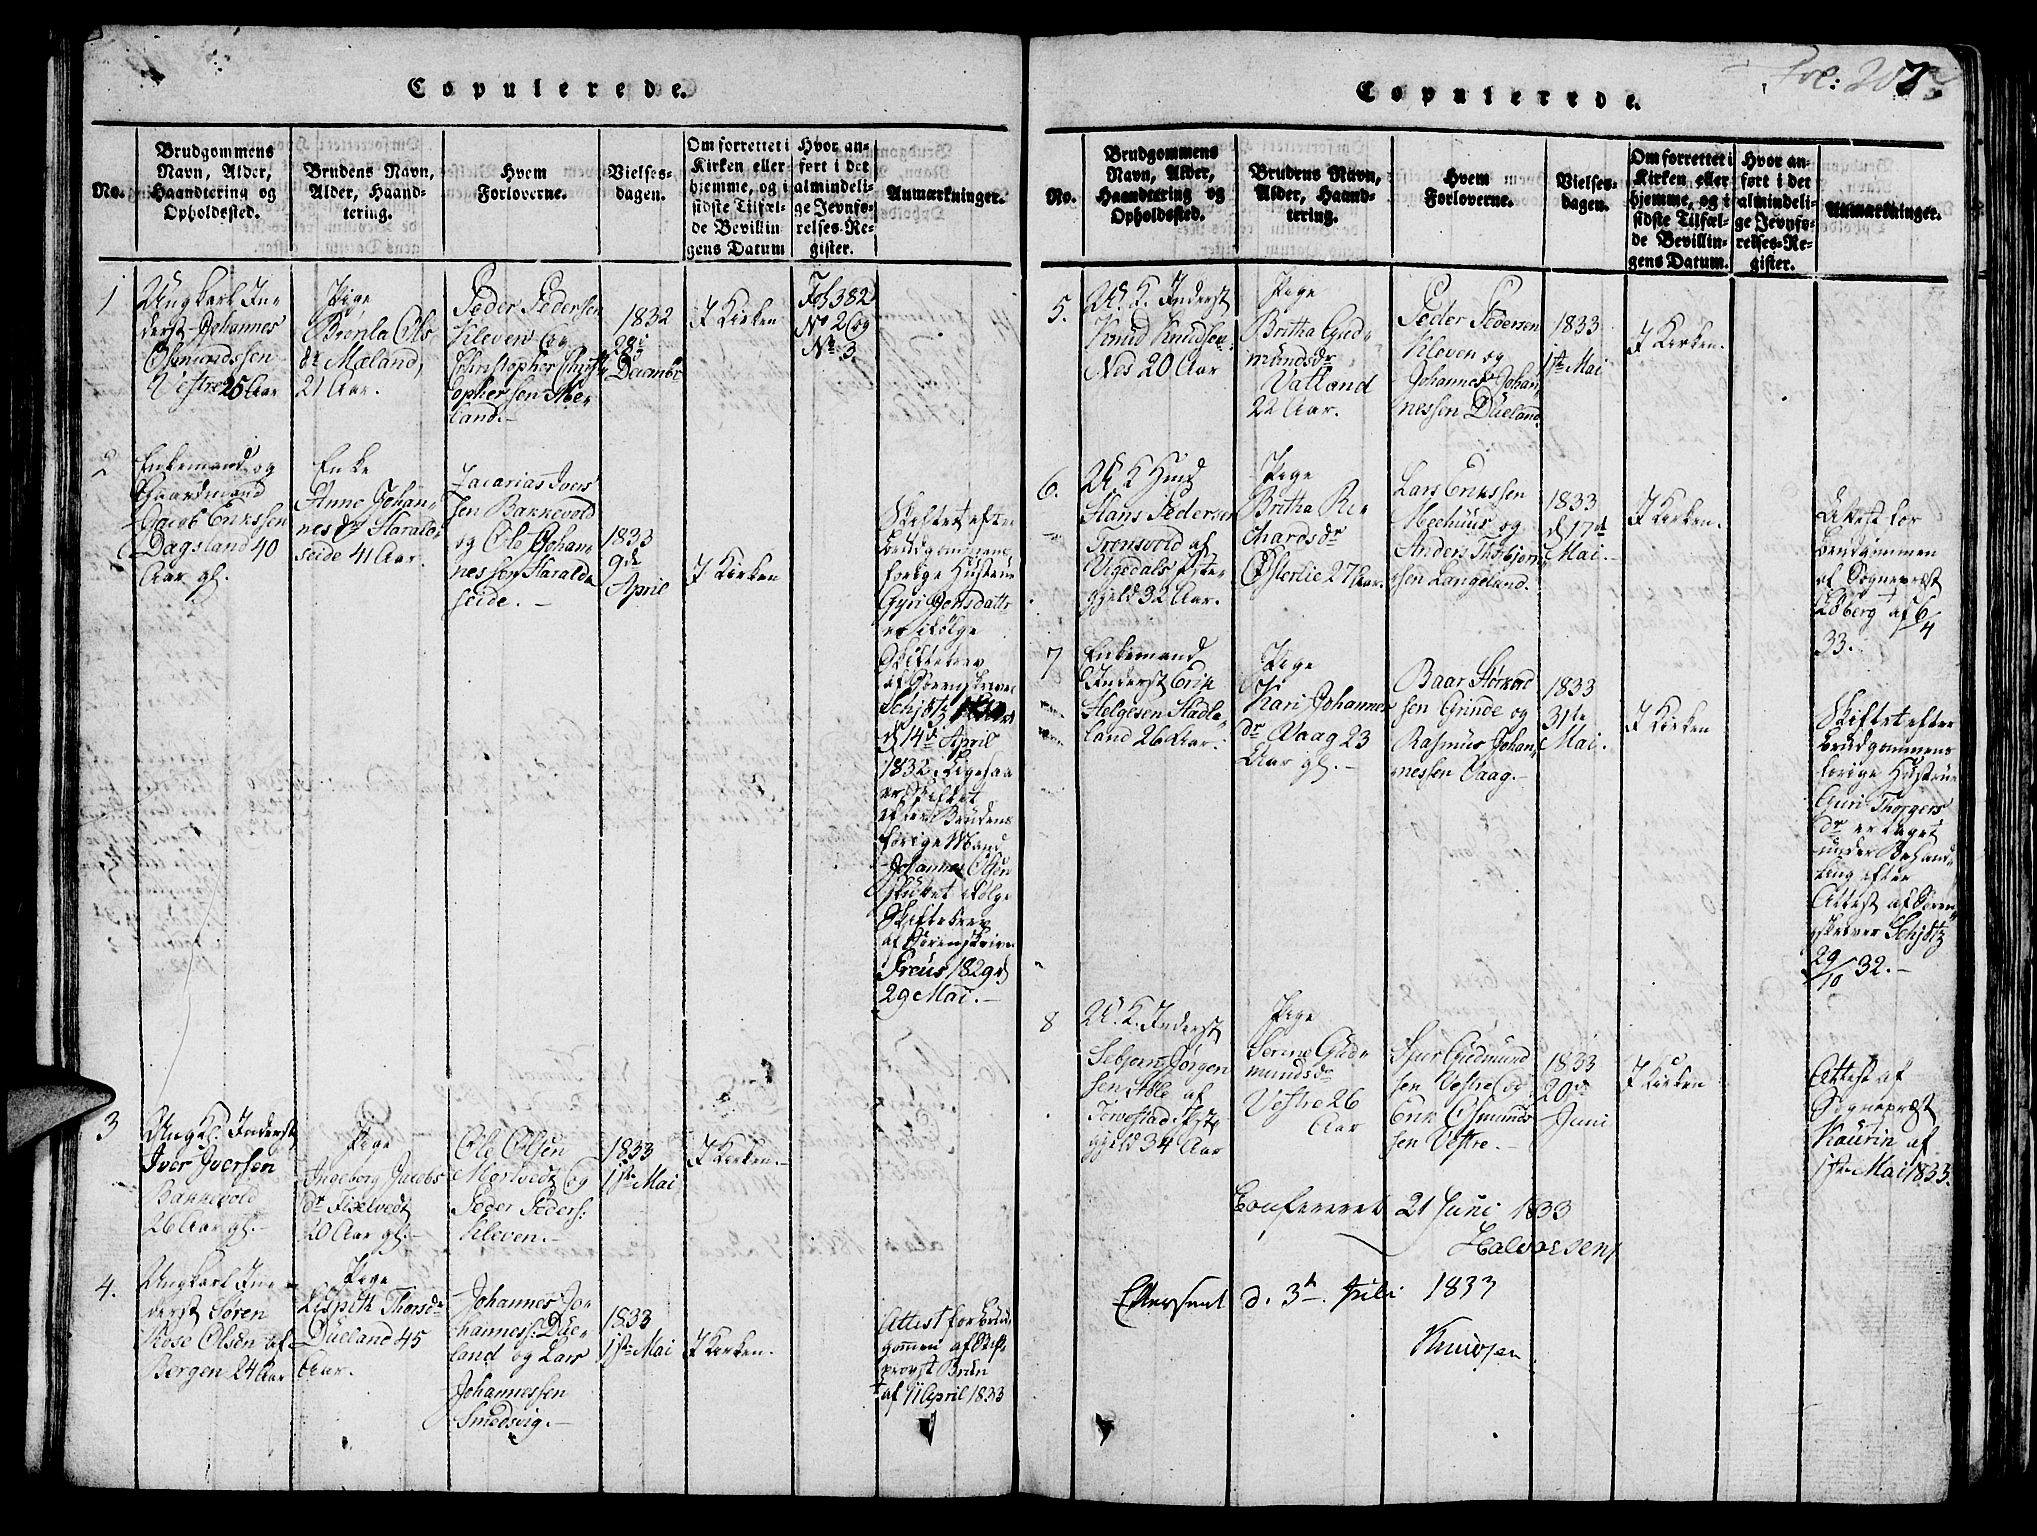 Copulerede.
No.
Brudgommens
Navn, Alder,
Haandtering og
Opholdssted.
Brudens Navn,
Alder, Haand-
tering.
Hvem
Forloverne.
Vielses-
dagen.
Om forrettet i
Kirken eller
hjemme, og i
sidste Tilfæl-
de Bevillin
gens Datum
Hvor an-
ført i det
almindeli-
ge Jevnfø-
relses-Re-
gister.
Anmærkninger.
1
Ungkarl In-
derst Johannes
Osmundssen
Vestre 25 Aar
Pige
Ols-
dr Mæland,
21 Aar.
Peder Pedersen
Kleven og
Christopher Christ-
ophersen
land.
1832
28de
Decembr
I Kirken
Fol 382
No 2 og
No 3
2
Enkemand og
Gaardmand
Jacob Erikssen
Dagsland 40
Aar gl.
Enke
Anne Johan-
nesdr Haralds-
seide 41 Aar.
Zacarias Ivers
sen Bakkevold
og Ole Johan
nessen Haralds
seide.
1833
9de
April
I Kirken
Skiftet efter
Brudgommens
forige Hustrue
Gyri Jonsdatter
er ifølge
Skiftebrev
af Sorenskriver
Schjøtz
d 14de April
1832. Ligesaa
er Skiftet
efter Brudens
forige Mand
Johannes Olsen
sluttet ifølge
Skiftebrev
af Sorenskriver
Freus 1829 d
29 Mai.
3
Ungk. Inderst
Iver Iversen
Bakkevold
26 Aar gl.
Pige
Ingeborg Jacobs
dr Fiskevedt
20 Aar gl.
Ole Olsen
Mortvedt og
Peder Peders:
Kleven.
1833
1ste Mai
I Kirken.
4.
Ungkarl In-
derst Søren
Rose Olsen af
Bergen 24 Aar
Pige
Lispeth Thorsdr
Dueland 45
Aar.
Johannes Jo-
hanness: Due-
land og Lars
Johannessen
Smedsvig.
1833
1ste Mai
I Kirken.
Attest for Brud-
gommen af
provst Brun
af 11 April 1833
Copulerede.
Fol: 207
No.
Brudgommens
Navn, Alder,
Haandtering og
Opholdssted.
Brudens Navn,
Alder, Haand-
tering.
Hvem
Forloverne.
Vielses-
dagen.
Om forrettet i
Kirken eller
hjemme, og i
sidste Tilfæl-
de Bevillin-
gens Datum.
Hvor an-
ført i det
almindeli-
ge Jevnfø-
relses-Re-
gister.
Anmærkninger.
5.
U. K. Inderst
Knud Knudsen
Nes 20 Aar
Pige
Britha Gud-
mundsdr
Vatland
22 Aar.
Peder Pedersen
Kleven og
Johannes Johan-
nessen Dueland.
1833
1ste Mai
I Kirken.
6.
U. K
Hans Pedersen
Tronsvold af
Vigedals Præste
gjeld 32 Aar.
Pige
Britha Ri-
chardsdr
Østerlie 27 Aar.
Lars Erikssen
Meehuus og
Anders Thorbjørn-
sen Langeland.
1833
d 17de
Mai.
I Kirken.
Attest for
Brudgommen
af Sognepræst
af 6/4
33.
7
Enkemand
Inderst Erik
Helgesen Stadle-
land 26 Aar.
Pige
Kari Johannes
dr Vaag 23
Aar gl.
Baar Størkord
sen Grinde og
Rasmus Johan-
nessen Vaag.
1833
31te
Mai.
I Kirken
Skiftet efter
Brudgommens
forige Hustrue
Guri Thorgers
dr er taget
under Behand-
ling efter
Attest af Soren-
skriver Schjøtz
29/10 32.
8
U. K. Inderst
Sebjørn Jørgen
sen Able af
Torvestad Præste
gjeld 34 Aar
Pige
Serine Gud-
mundsdr
Vestre 26
Aar
Gudmund
sen Vestre og
Erik Osmunds
sen Vestre.
1833
20de
Juni
I Kirken
Attest af
Sognepræst
Kaurin af
1ste Mai 1833.
Confereret 21 Juni 1833
Halvorsen
Efterseet d. 3de Juli 1833
Knudsen